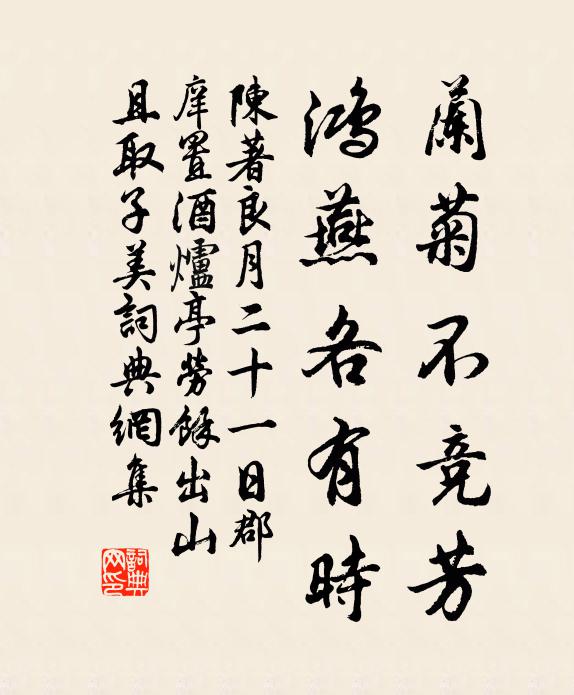 蘭菊不競芳
鴻燕各有時
陳著良月二十一日郡
庠置酒爐亭勞餘出山
且取子美詞典網集
詞典網印